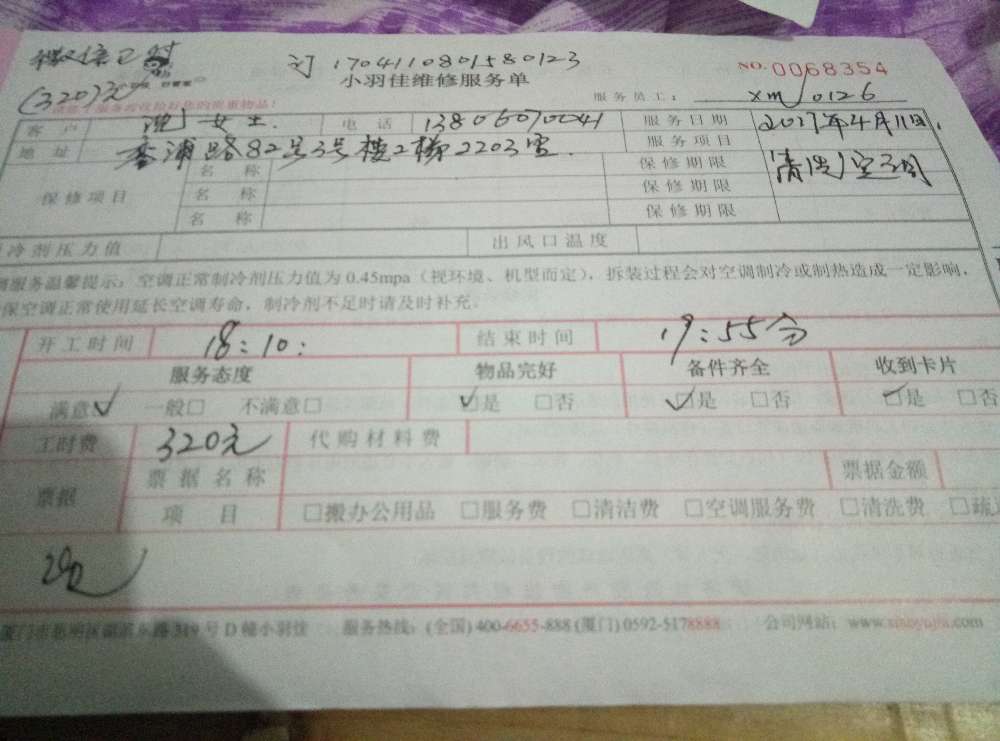 微信已付
订 1704110801580123
小羽佳维修服务单
NO. 0068354
(320)元
服务员工： xm 0126
客户 女士. 电话 13806070041 服务日期 2017年4月11日
地址 香浦路82号3号楼2梯2203室 服务项目 清洗空调
保修项目 名称 保修期限
名称 保修期限
名称 保修期限
冷剂压力值 出风口温度
服务温馨提示：空调正常制冷剂压力值为0.45mpa（视环境、机型而定），拆装过程会对空调制冷或制热造成一定影响，
保空调正常使用延长空调寿命，制冷剂不足时请及时补充.
开工时间 18:10: 结束时间 19:55分
服务态度 物品完好 备件齐全 收到卡片
满意✓ 一般□ 不满意□ ☑是 □否 ☑是 □否 ☑是 □否
工时费 320元 代购材料费
票据 票据名称 票据金额
项目 □搬办公用品 □服务费 □清洁费 □空调服务费 □清洗费 □疏
厦门市思明区 东路319号D幢小羽佳 服务热线：(全国) 400-6655-888 (厦门) 0592-5178888 公司网站：www.xiaoyujia.com